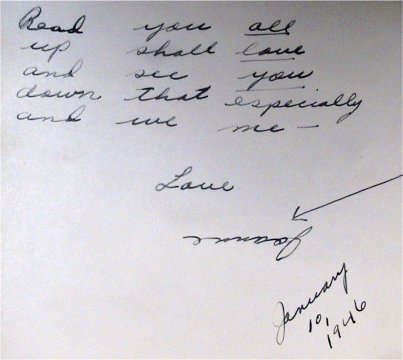 Read you all
up shall love
and see you
down that especially
and we me —
Love
Joanne
January
10,
1946